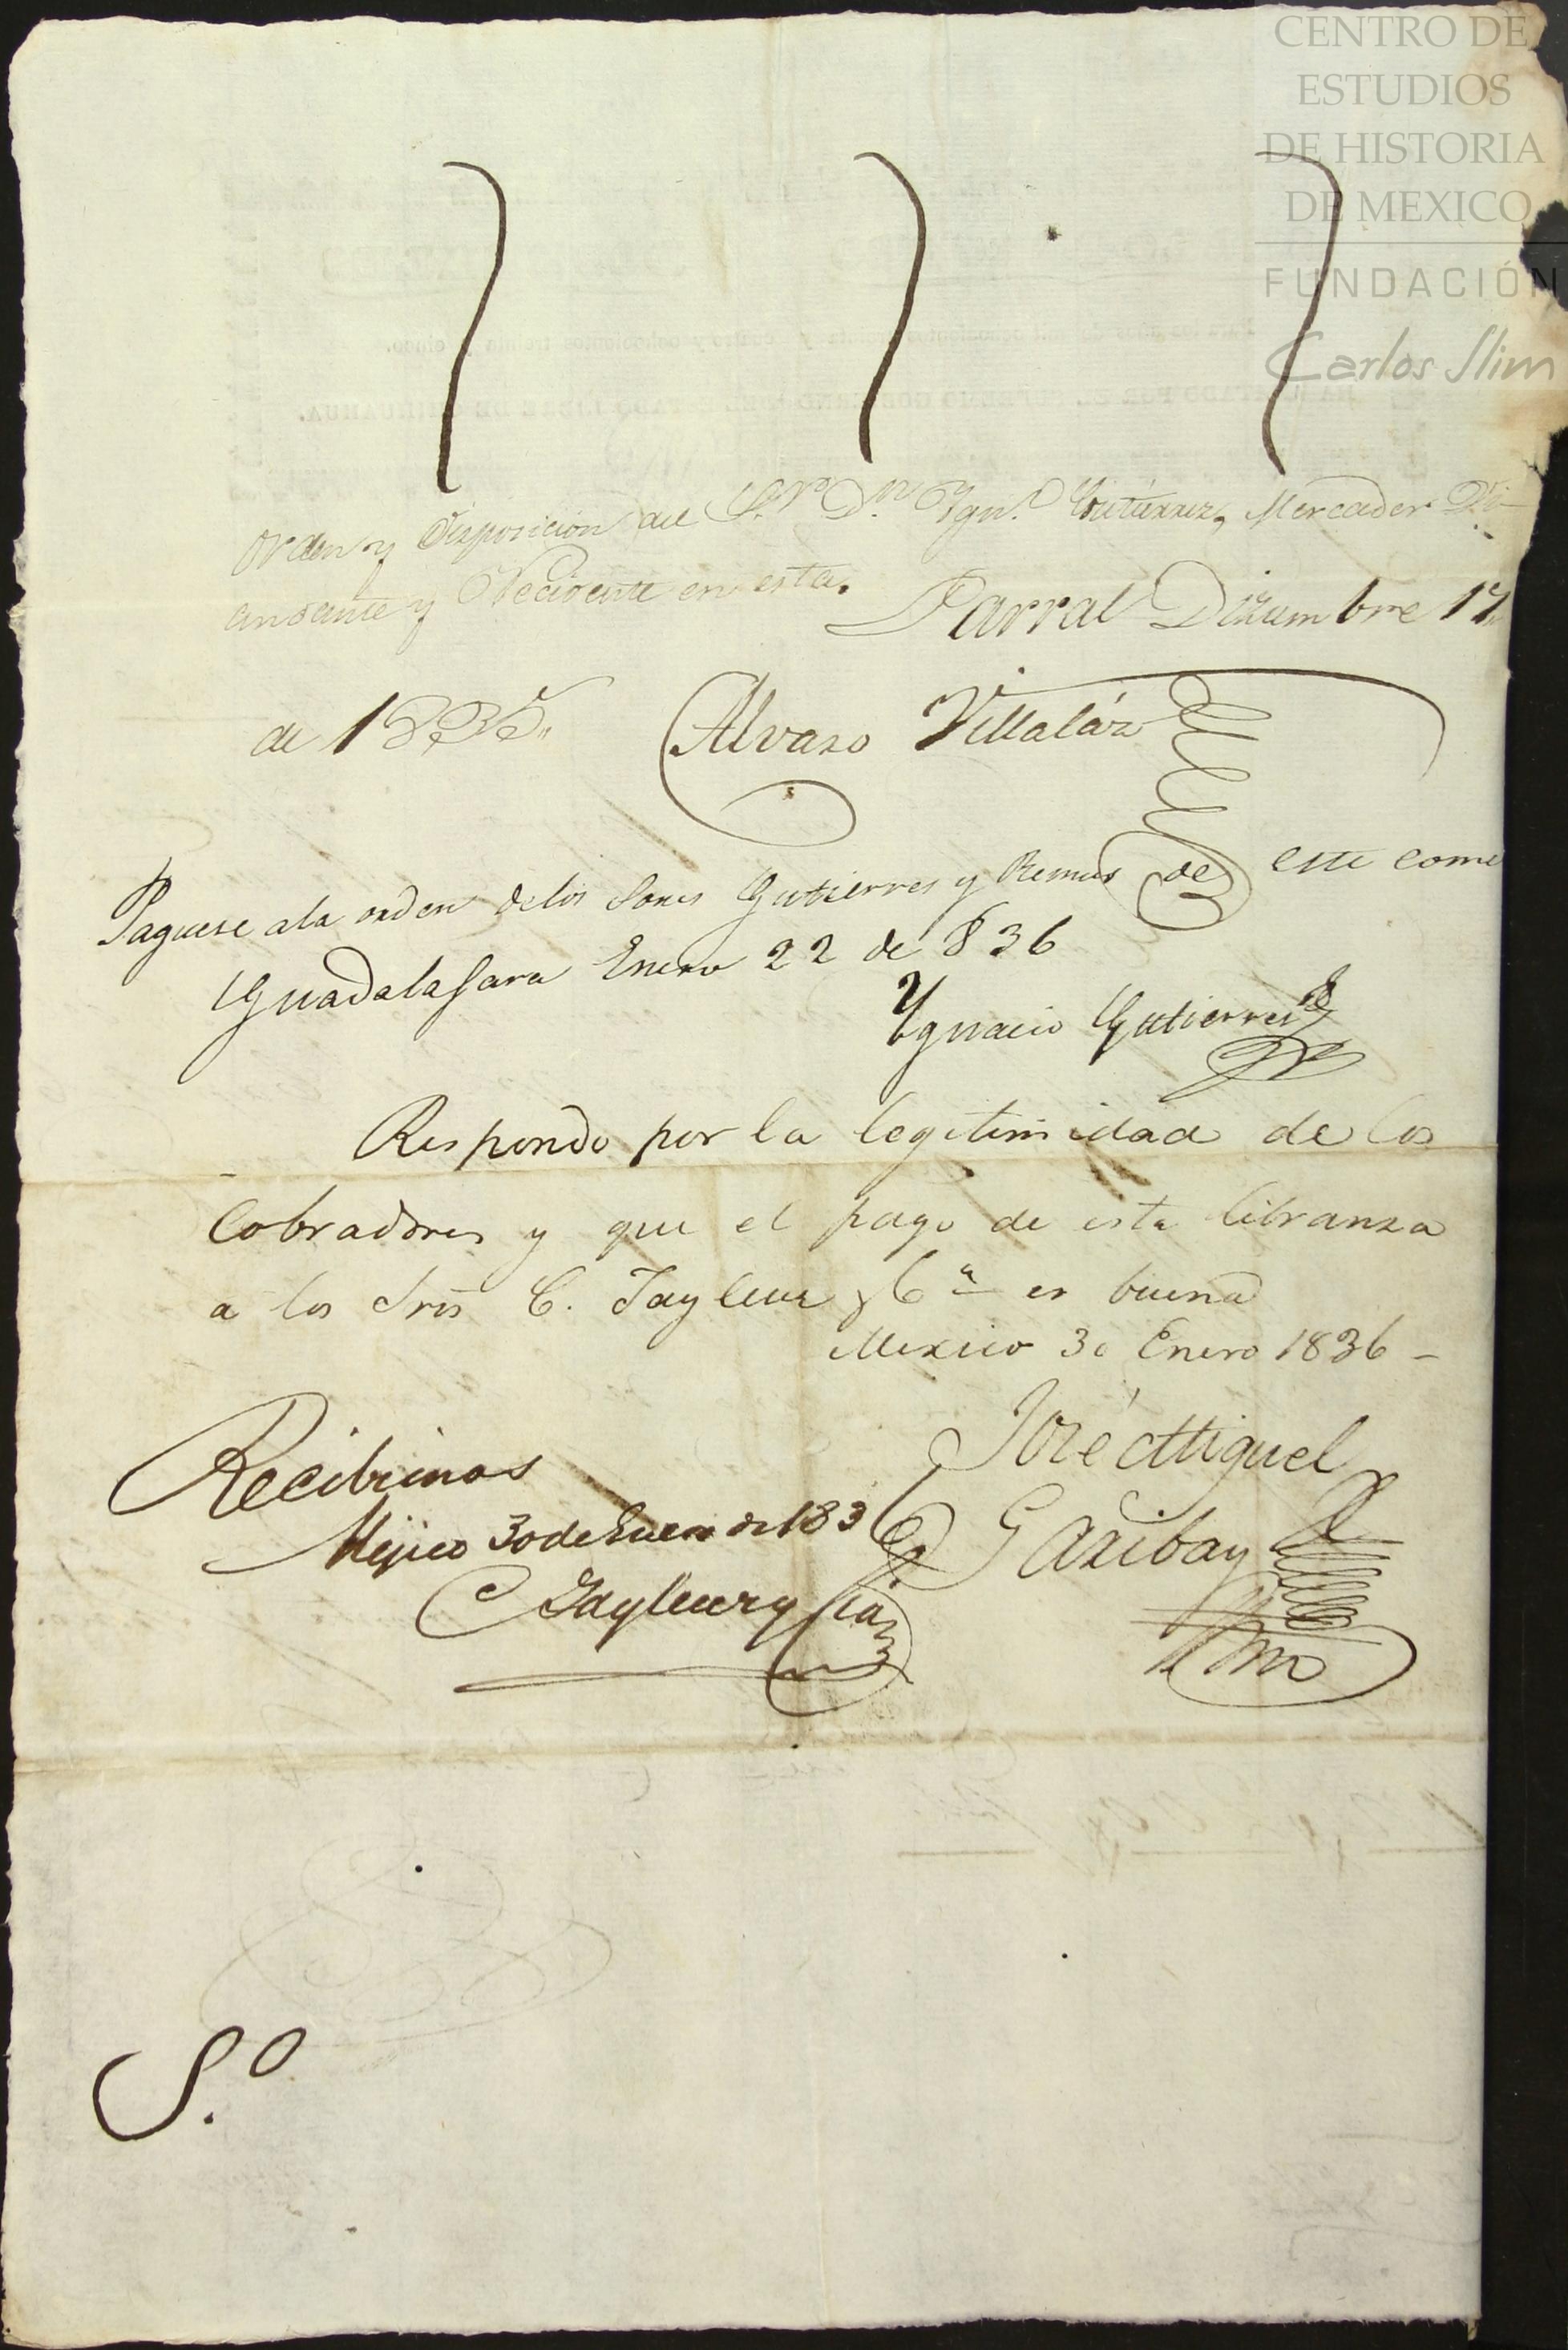 CENTRO DE
ESTUDIOS
DE HISTORIA
DE MEXICO
FUNDACIÓN
Carlos Slim
orden y disposicion del S.r D.n Ygn.o Gutierrez, Mercader Vi-
andante y Recidente en esta. Parral Diziembre 17
de 1835. Alvaro Villaláz
Paguese ala orden delos Sores Gutierres y Remus de este come
Guadalajara Enero 22 de 836
Ygnacio Gutierres
Respondo por la legitimidad de los
Cobradores y que el pago de esta libranza
a los Sres C. Tayleur y Ca es buena
Mexico 30 Enero 1836 -
José Miguel
Garibay
Recibimos
Mejico 30 de Enero de 1836
C Tayleur y Cia
S.o